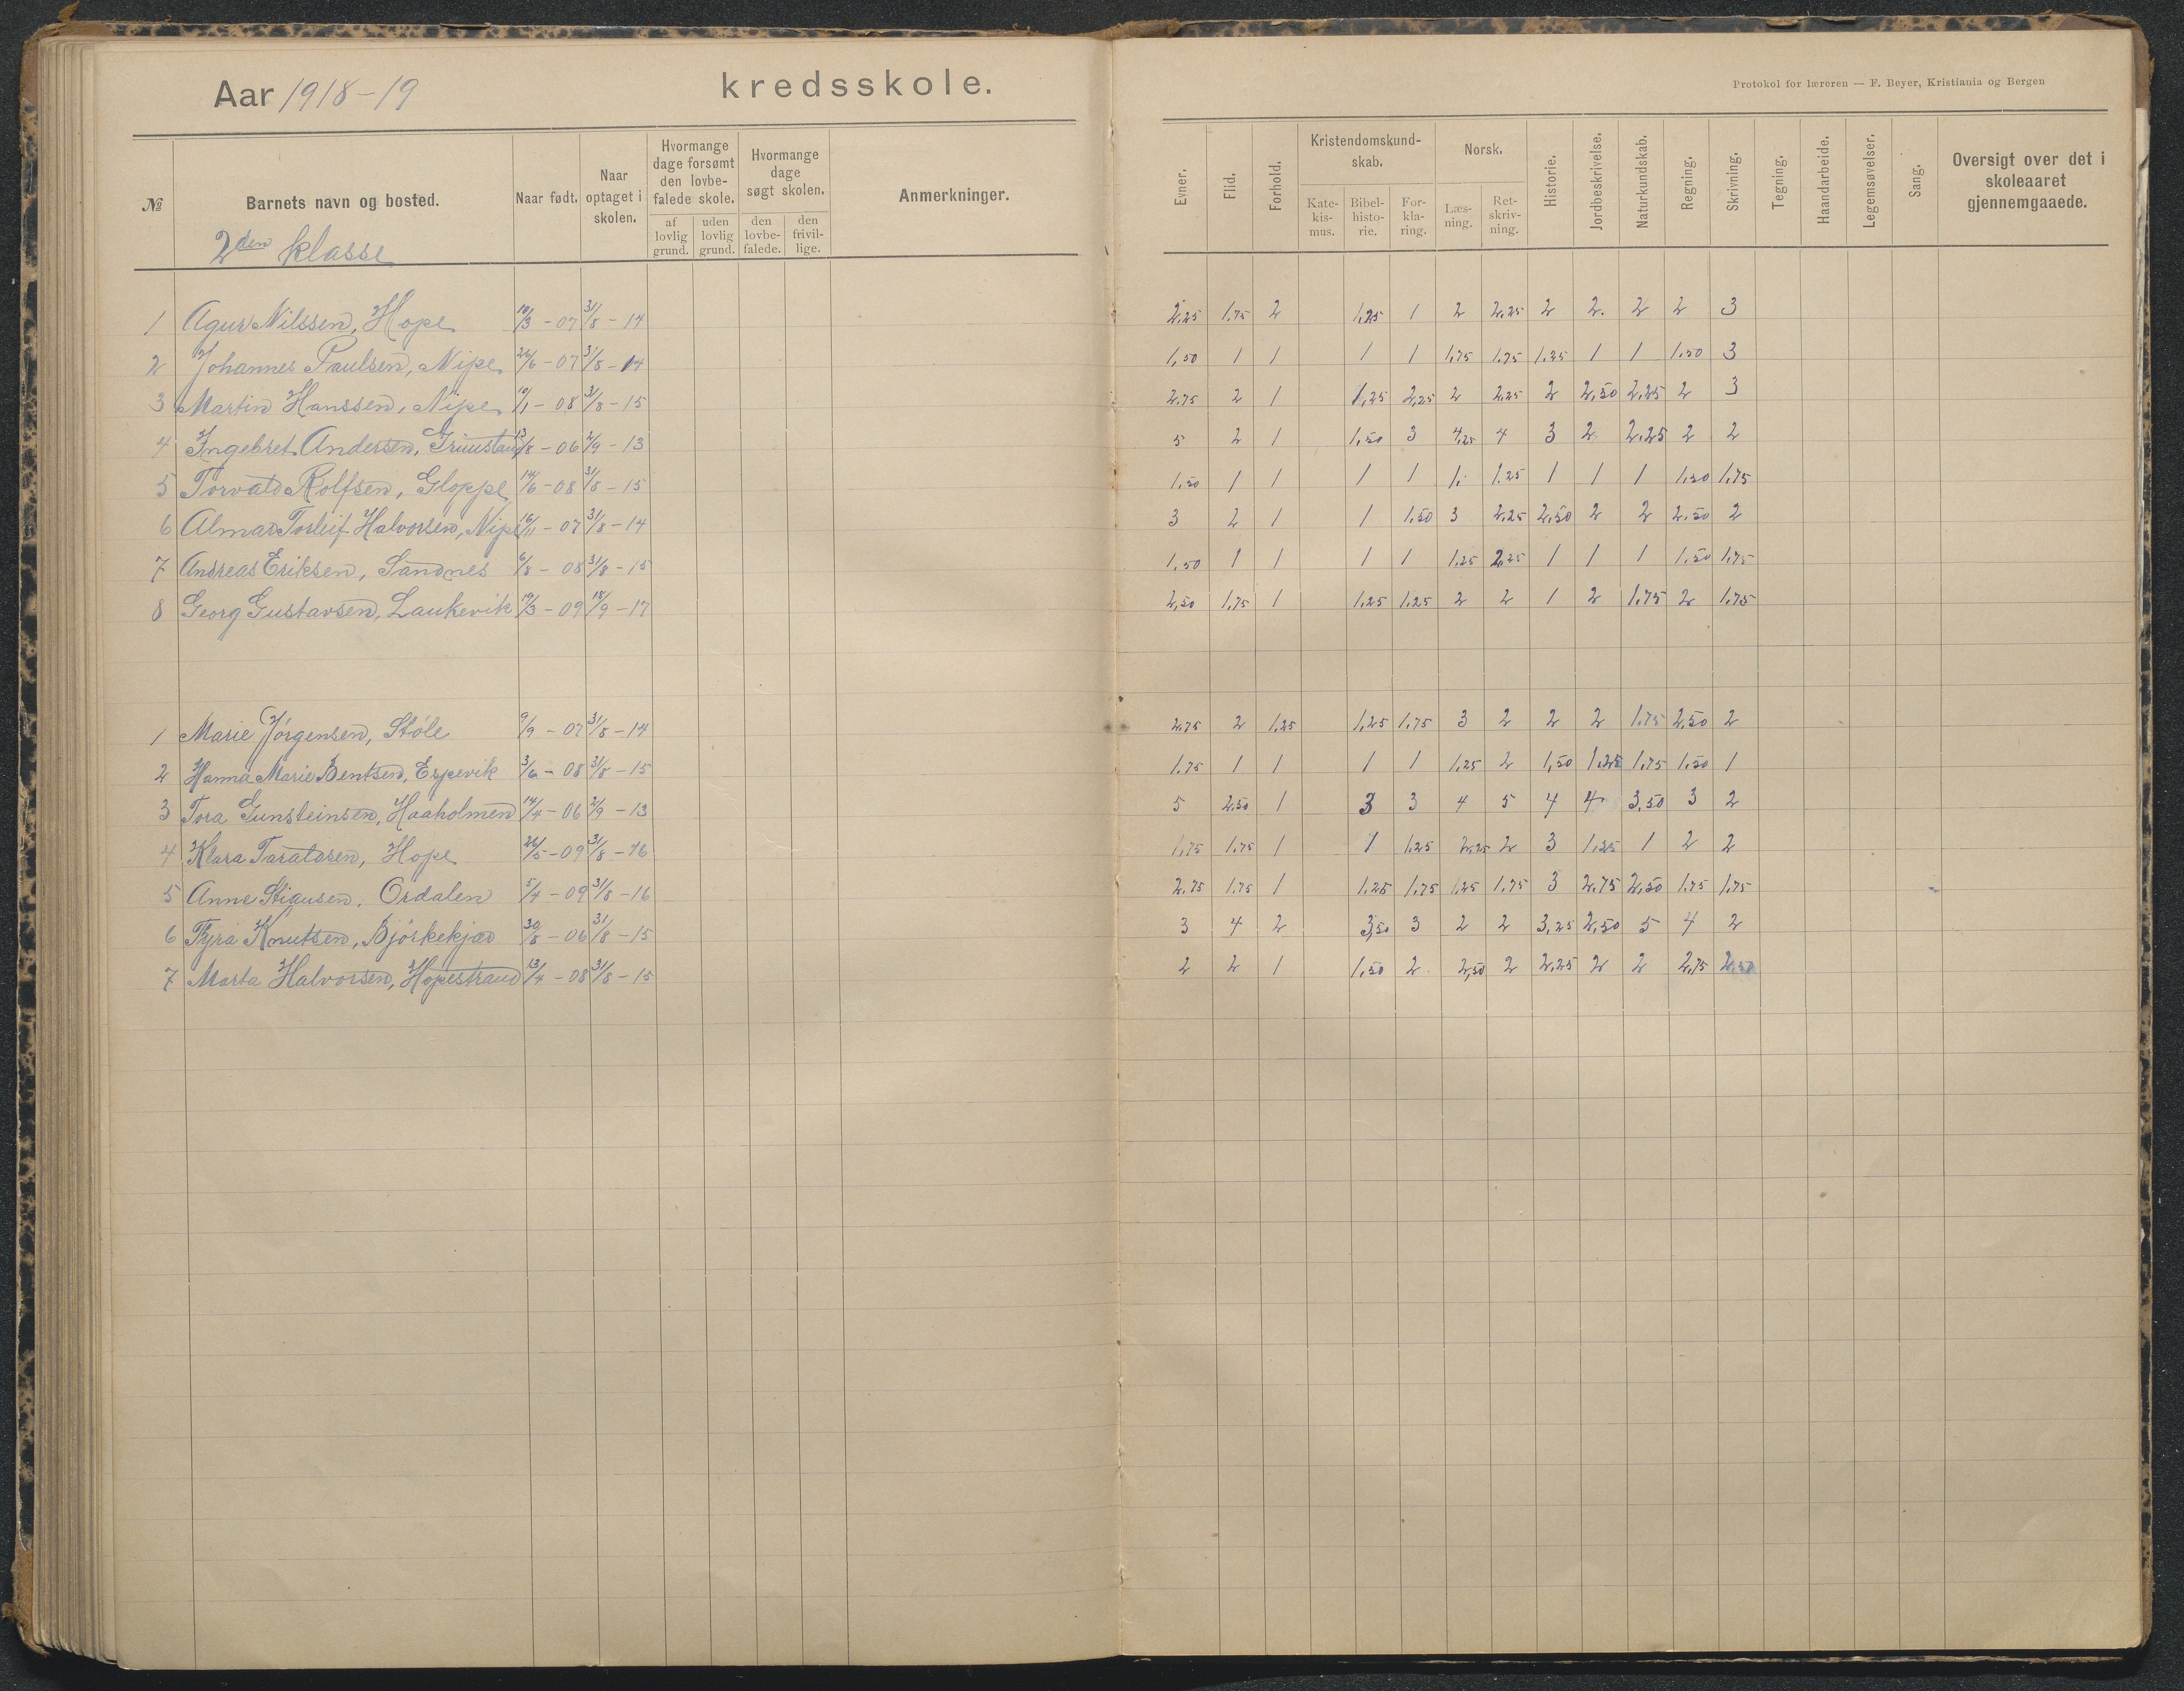 Aar 1918-19 kredsskole.
Protokol for læreren — F. Beyer, Kristiania og Bergen
№ Barnets navn og bosted. Naar født. Naar optaget i skolen. Hvormange dage forsømt den lovbefalede skole. af lovlig grund. uden lovlig grund. Hvormange dage søgt skolen. den lovbefalede. den frivillige. Anmerkninger. Evner. Flid. Forhold. Kristendomskundskab. Katekismus. Bibelhistorie. Forklaring. Norsk. Læsning. Retskrivning. Historie. Jordbeskrivelse. Naturkundskab. Regning. Skrivning. Tegning. Haandarbeide. Legemsøvelser. Sang. Oversigt over det i skoleaaret gjennemgaaede.
2den klasse
1 Agur Nilssen, Hope 10/3 - 07 31/8 - 14 2,25 1,75 2 1,25 1 2 2,25 2 2. 2 2 3
2 Johannes Paulsen, Nipe 26/6 - 07 31/8 - 14 1,50 1 1 1 1 1,75 1,75 1,25 1 1 1,50 3
3 Martin Hanssen, Nipe 10/1 - 08 31/8 - 15 2,75 2 1 1,25 2,25 2 2,25 2 2,50 2,25 2 3
4 Ingebret Andersen, Grimstad 13/8 - 06 2/9 - 13 5 2 1 1,50 3 4,25 4 3 2 2,25 2 2
5 Torvald Rolfsen, Gloppe 14/6 - 08 31/8 - 15 1,50 1 1 1 1 1, 1,25 1 1 1 1,50 1,75
6 Almar Torleif Halvorsen, Nipe 16/11 - 07 31/8 - 14 3 2 1 1 1,50 3 2,25 2,50 2 2 2,50 2
7 Andreas Eriksen, Sandnes 6/8 - 08 31/8 - 15 1,50 1 1 1 1 1,25 2,25 1 1 1 1,50 1,75
8 Georg Gustavsen, Laukevik 19/3 - 09 18/9 - 17 2,50 1,75 1 1,25 1,25 2 2 1 2 1,75 2 1,75
1 Marie Jörgensen, Støle 9/9 - 07 31/8 - 14 2,75 2 1,25 1,25 1,75 3 2 2 2 1,75 2,50 2
2 Hanna Marie Bentsen, Espevik 3/6 - 08 31/8 - 15 1,75 1 1 1 1 1,25 2 1,50 1,25 1,75 1,50 1
3 Tora Gunsteinsen, Haaholmen 14/4 - 06 2/9 - 13 5 2,50 1 3 3 4 5 4 4 3,50 3 2
4 Klara Taraldsen, Hope 26/5 - 09 31/8 - 16 1,75 1,75 1 1 1,25 2,25 2 3 1,25 1 2 2
5 Anne Stiansen, Ordalen 5/4 - 09 31/8 - 16 2,75 1,75 1 1,25 1,75 1,25 1,75 3 2,75 2,50 1,75 1,75
6 Tyra Knutsen, Björkekjær 30/8 - 06 31/8 - 15 3 4 2 3,50 3 2 2 3,25 2,50 5 4 2
7 Marta Halvorsen, Hopestrand 13/4 - 08 31/8 - 15 2 2 1 1,50 2 2,50 2 2,25 2 2 2,75 2,50